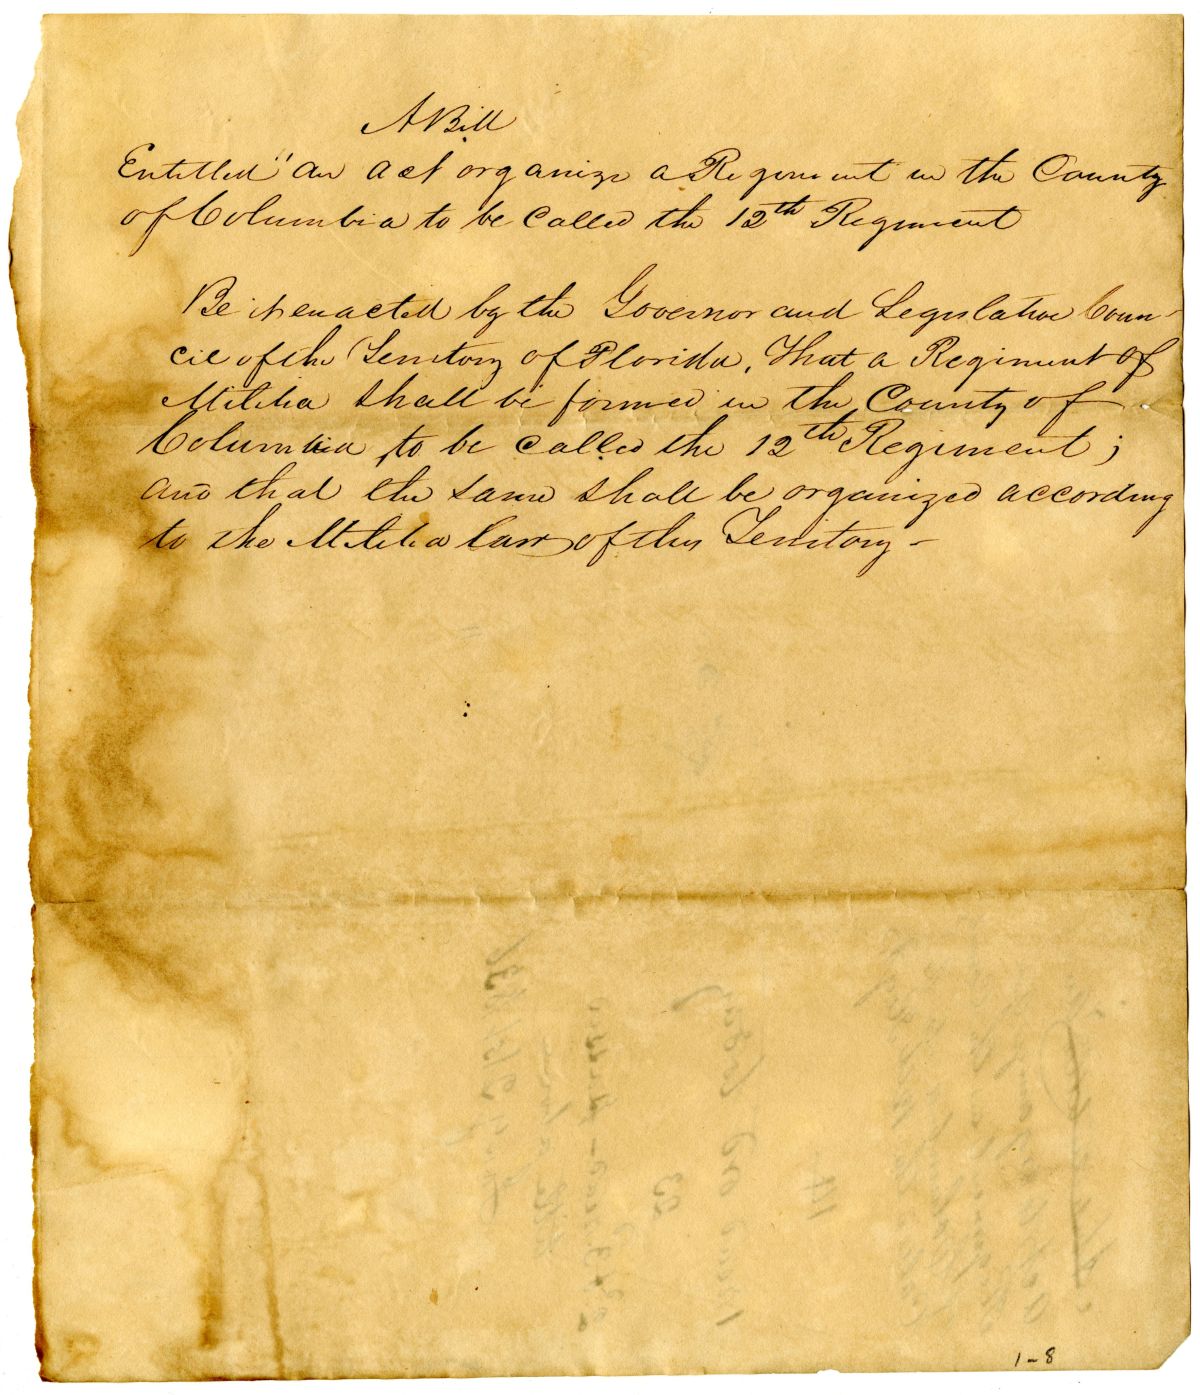 A Bill
Entitled "an act organize a Regiment in the County
of Columbia to be called the 12th Regiment
Be it enacted by the Governor and Legislative Coun-
cil of the Territory of Florida, That a Regiment of
Militia shall be formed in the County of
Columbia, to be called the 12th Regiment;
and that the same shall be organized according
to the Militia law of this Territory -
1-8